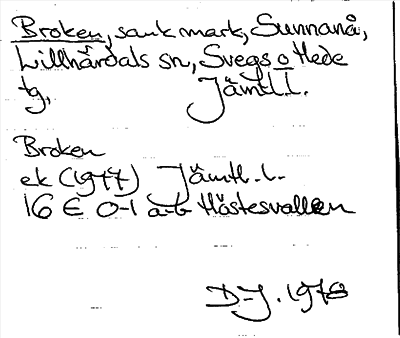 Broken, sank mark, Sunnanå,
Lillhärdals sn, Svegs o Hede
tg, Jämtl.l.
Broken
ek (1977) Jämtl.l.
16 E 0-1 a-b Hästesvallen
D-J. 1978